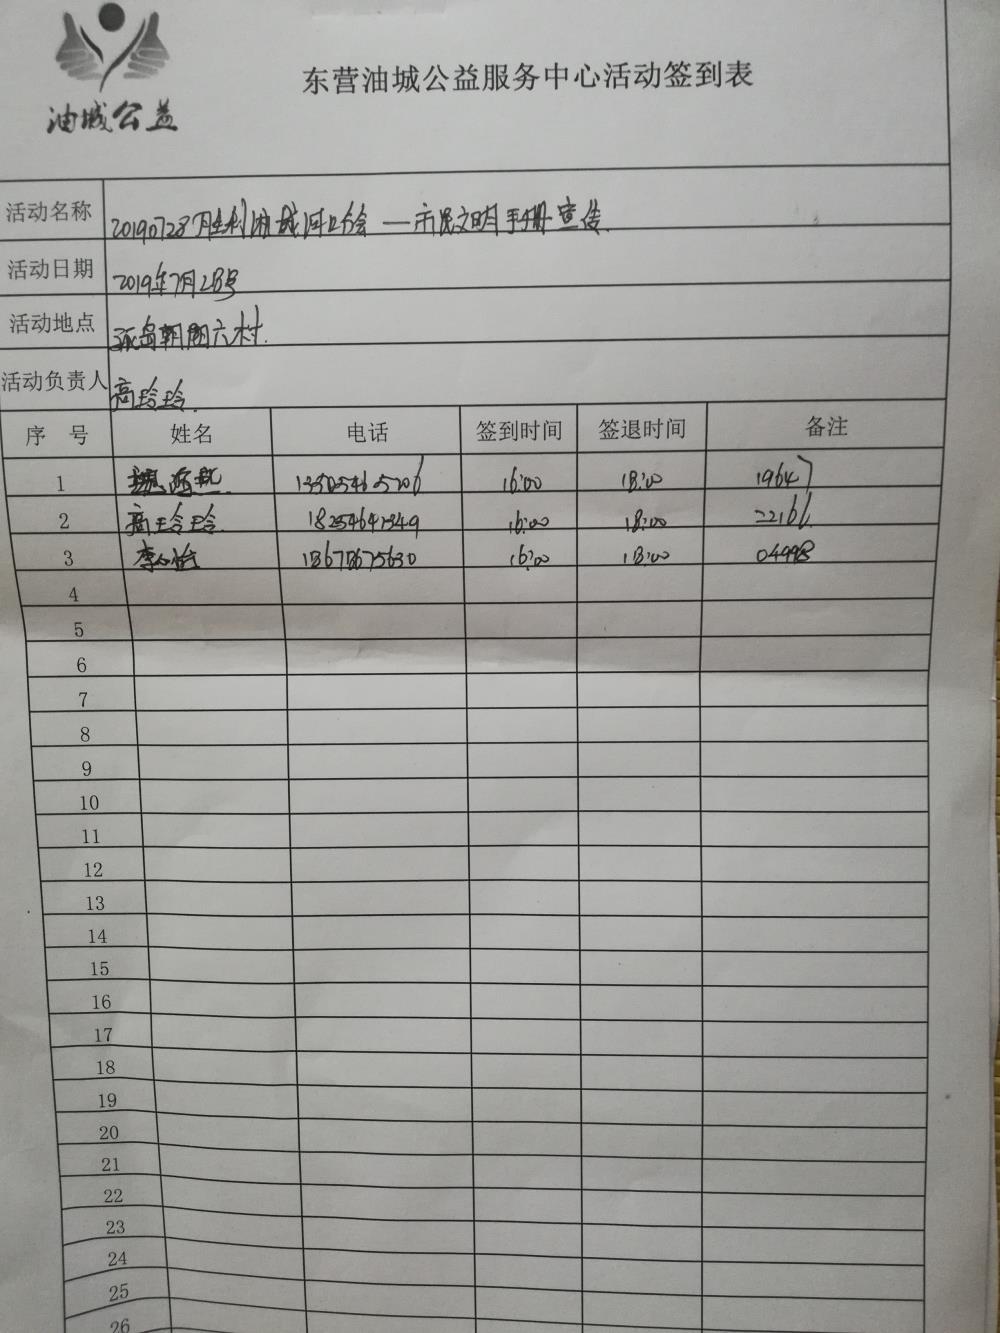 油城公益
东营油城公益服务中心活动签到表
活动名称 20190728胜利油城河口分会—市民文明手册宣传
活动日期 2019年7月28号
活动地点 孤岛朝阳六村
活动负责人 高玲玲
序 号 姓名 电话 签到时间 签退时间 备注
1 13505465206 16:00 18:00 19647
2 高玲玲 18254641349 16:00 18:00 22166
3 李心怡 18678675630 16:00 18:00 04998
4
5
6
7
8
9
10
11
12
13
14
15
16
17
18
19
20
21
22
23
24
25
26